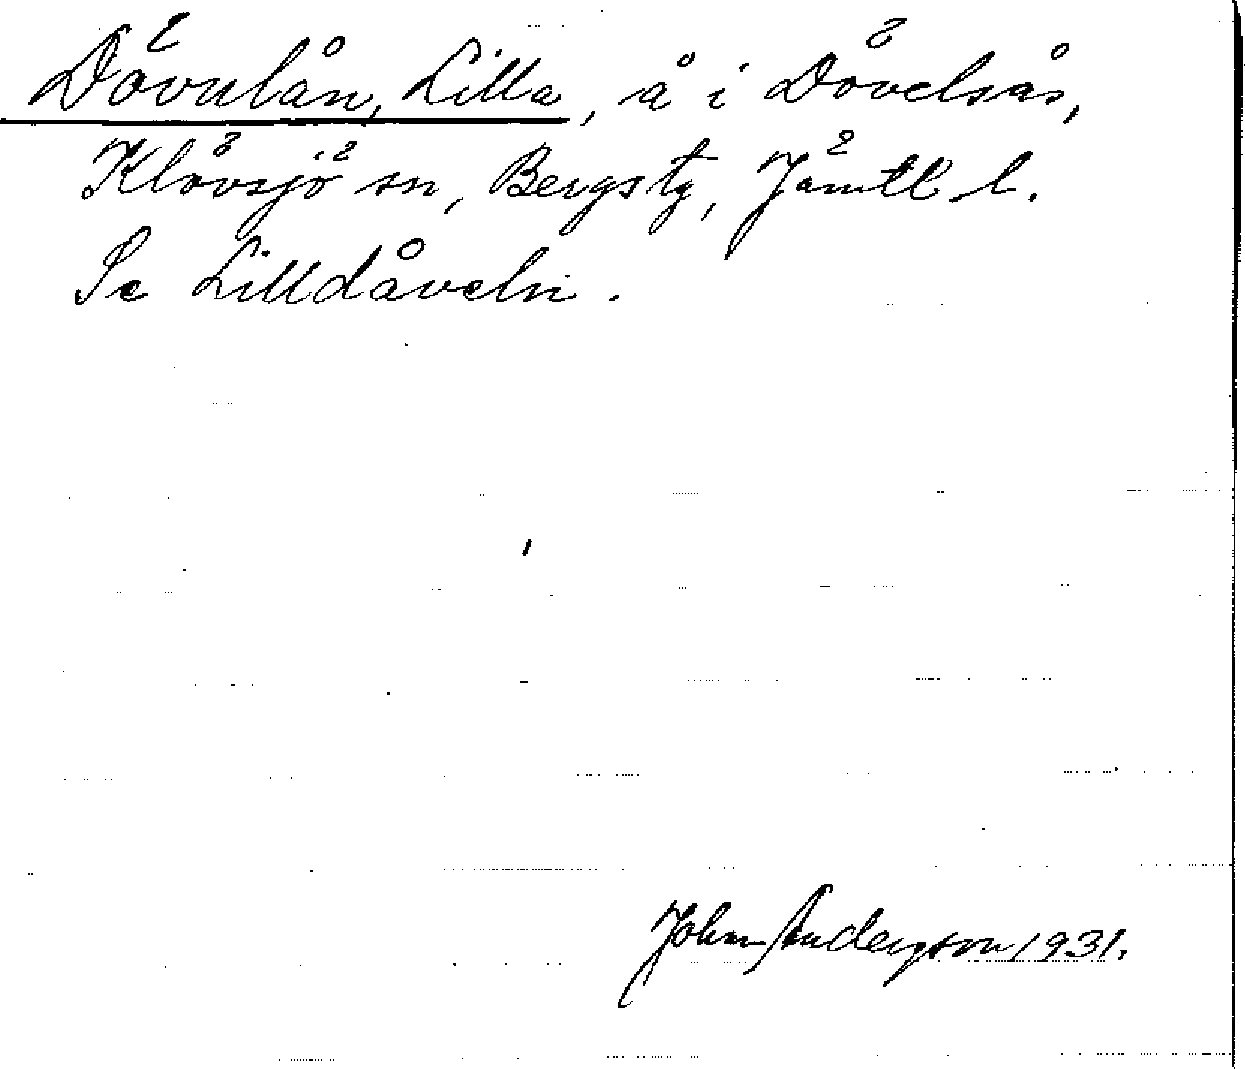 Dövulån, Lilla, å i Dövelsås,
Klövsjö sn, Bergs tg, Jämtl l.
Se Lilldåveln.
John Andersson 1931.